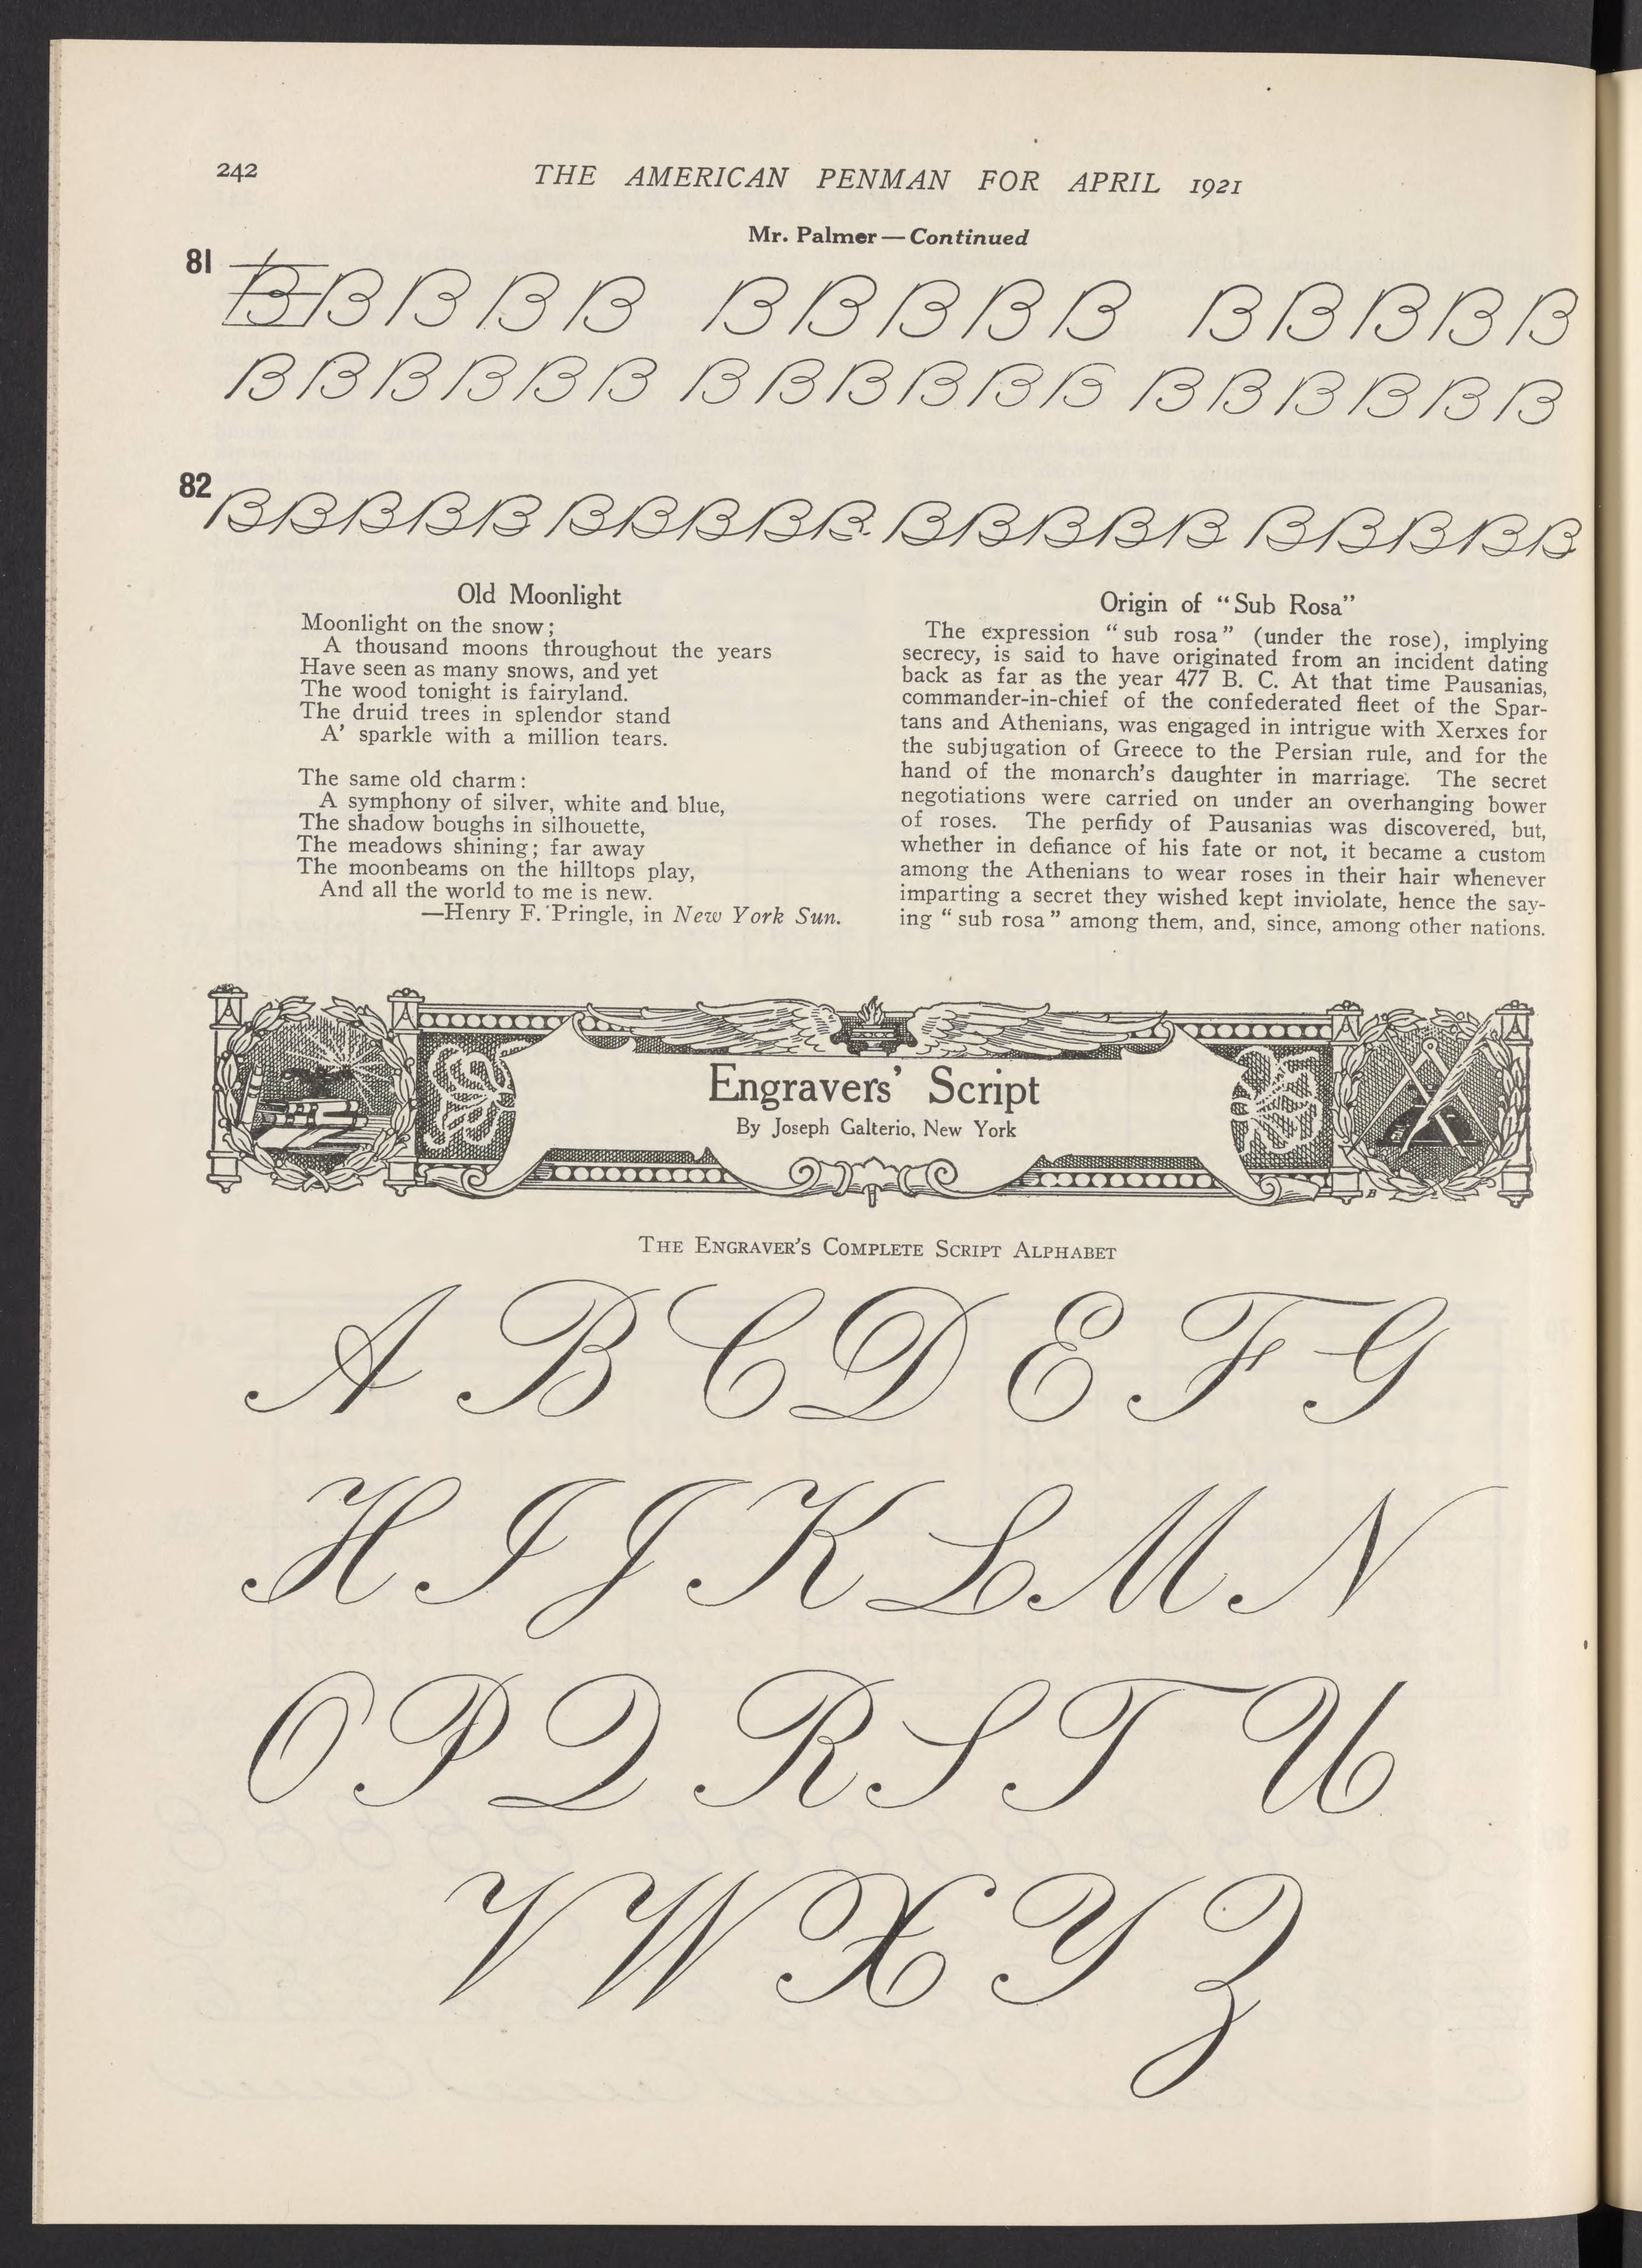 242
THE AMERICAN PENMAN FOR APRIL 1921
Mr. Palmer—Continued
81
B B B B B B B B B B B B B B B
B B B B B B B B B B B B B B B B B B
82
B B B B B B B B B B B B B B B B B B B B
Old Moonlight
Moonlight on the snow;
A thousand moons throughout the years
Have seen as many snows, and yet
The wood tonight is fairyland.
The druid trees in splendor stand
A' sparkle with a million tears.
The same old charm:
A symphony of silver, white and blue,
The shadow boughs in silhouette,
The meadows shining; far away
The moonbeams on the hilltops play,
And all the world to me is new.
—Henry F. Pringle, in New York Sun.
Origin of “Sub Rosa”
The expression “sub rosa” (under the rose), implying
secrecy, is said to have originated from an incident dating
back as far as the year 477 B. C. At that time Pausanias,
commander-in-chief of the confederated fleet of the Spar-
tans and Athenians, was engaged in intrigue with Xerxes for
the subjugation of Greece to the Persian rule, and for the
hand of the monarch's daughter in marriage. The secret
negotiations were carried on under an overhanging bower
of roses. The perfidy of Pausanias was discovered, but,
whether in defiance of his fate or not, it became a custom
among the Athenians to wear roses in their hair whenever
imparting a secret they wished kept inviolate, hence the say-
ing “sub rosa” among them, and, since, among other nations.
Engravers' Script
By Joseph Galterio, New York
The Engraver's Complete Script Alphabet
A B C D E F G
H I J K L M N
O P Q R S T U
V W X Y Z